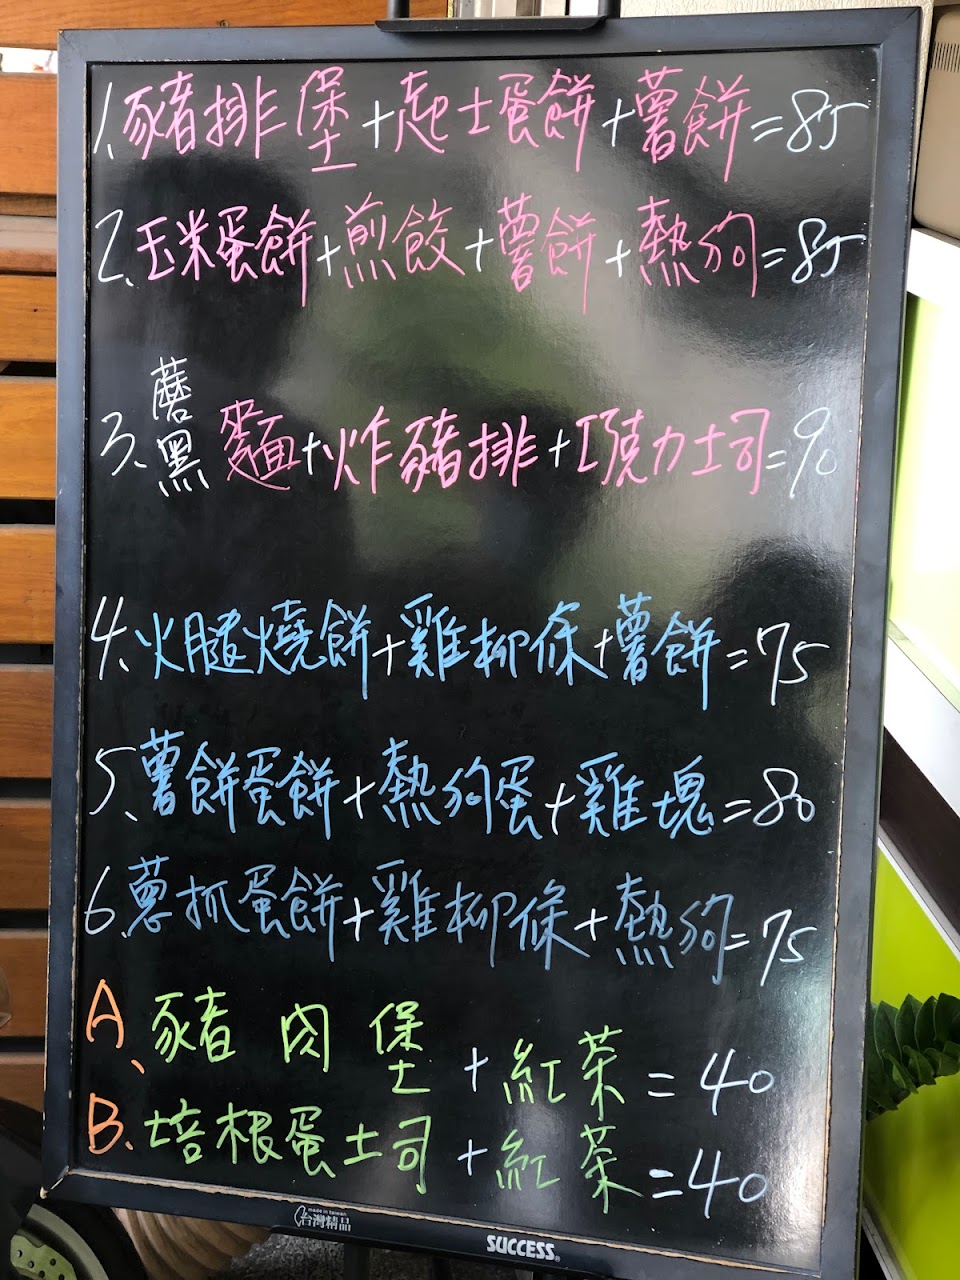 1.豬排堡+起士蛋餅+薯餅=85
2.玉米蛋餅+煎餃+薯餅+熱狗=85
3.蘑黑麵+炸豬排+巧克力土司=90
4.火腿燒餅+雞柳條+薯餅=75
5.薯餅蛋餅+熱狗蛋+雞塊=80
6.蔥抓蛋餅+雞柳條+熱狗=75
A、豬肉堡+紅茶=40
B.培根蛋土司+紅茶=40
made in taiwan
台灣精品
SUCCESS